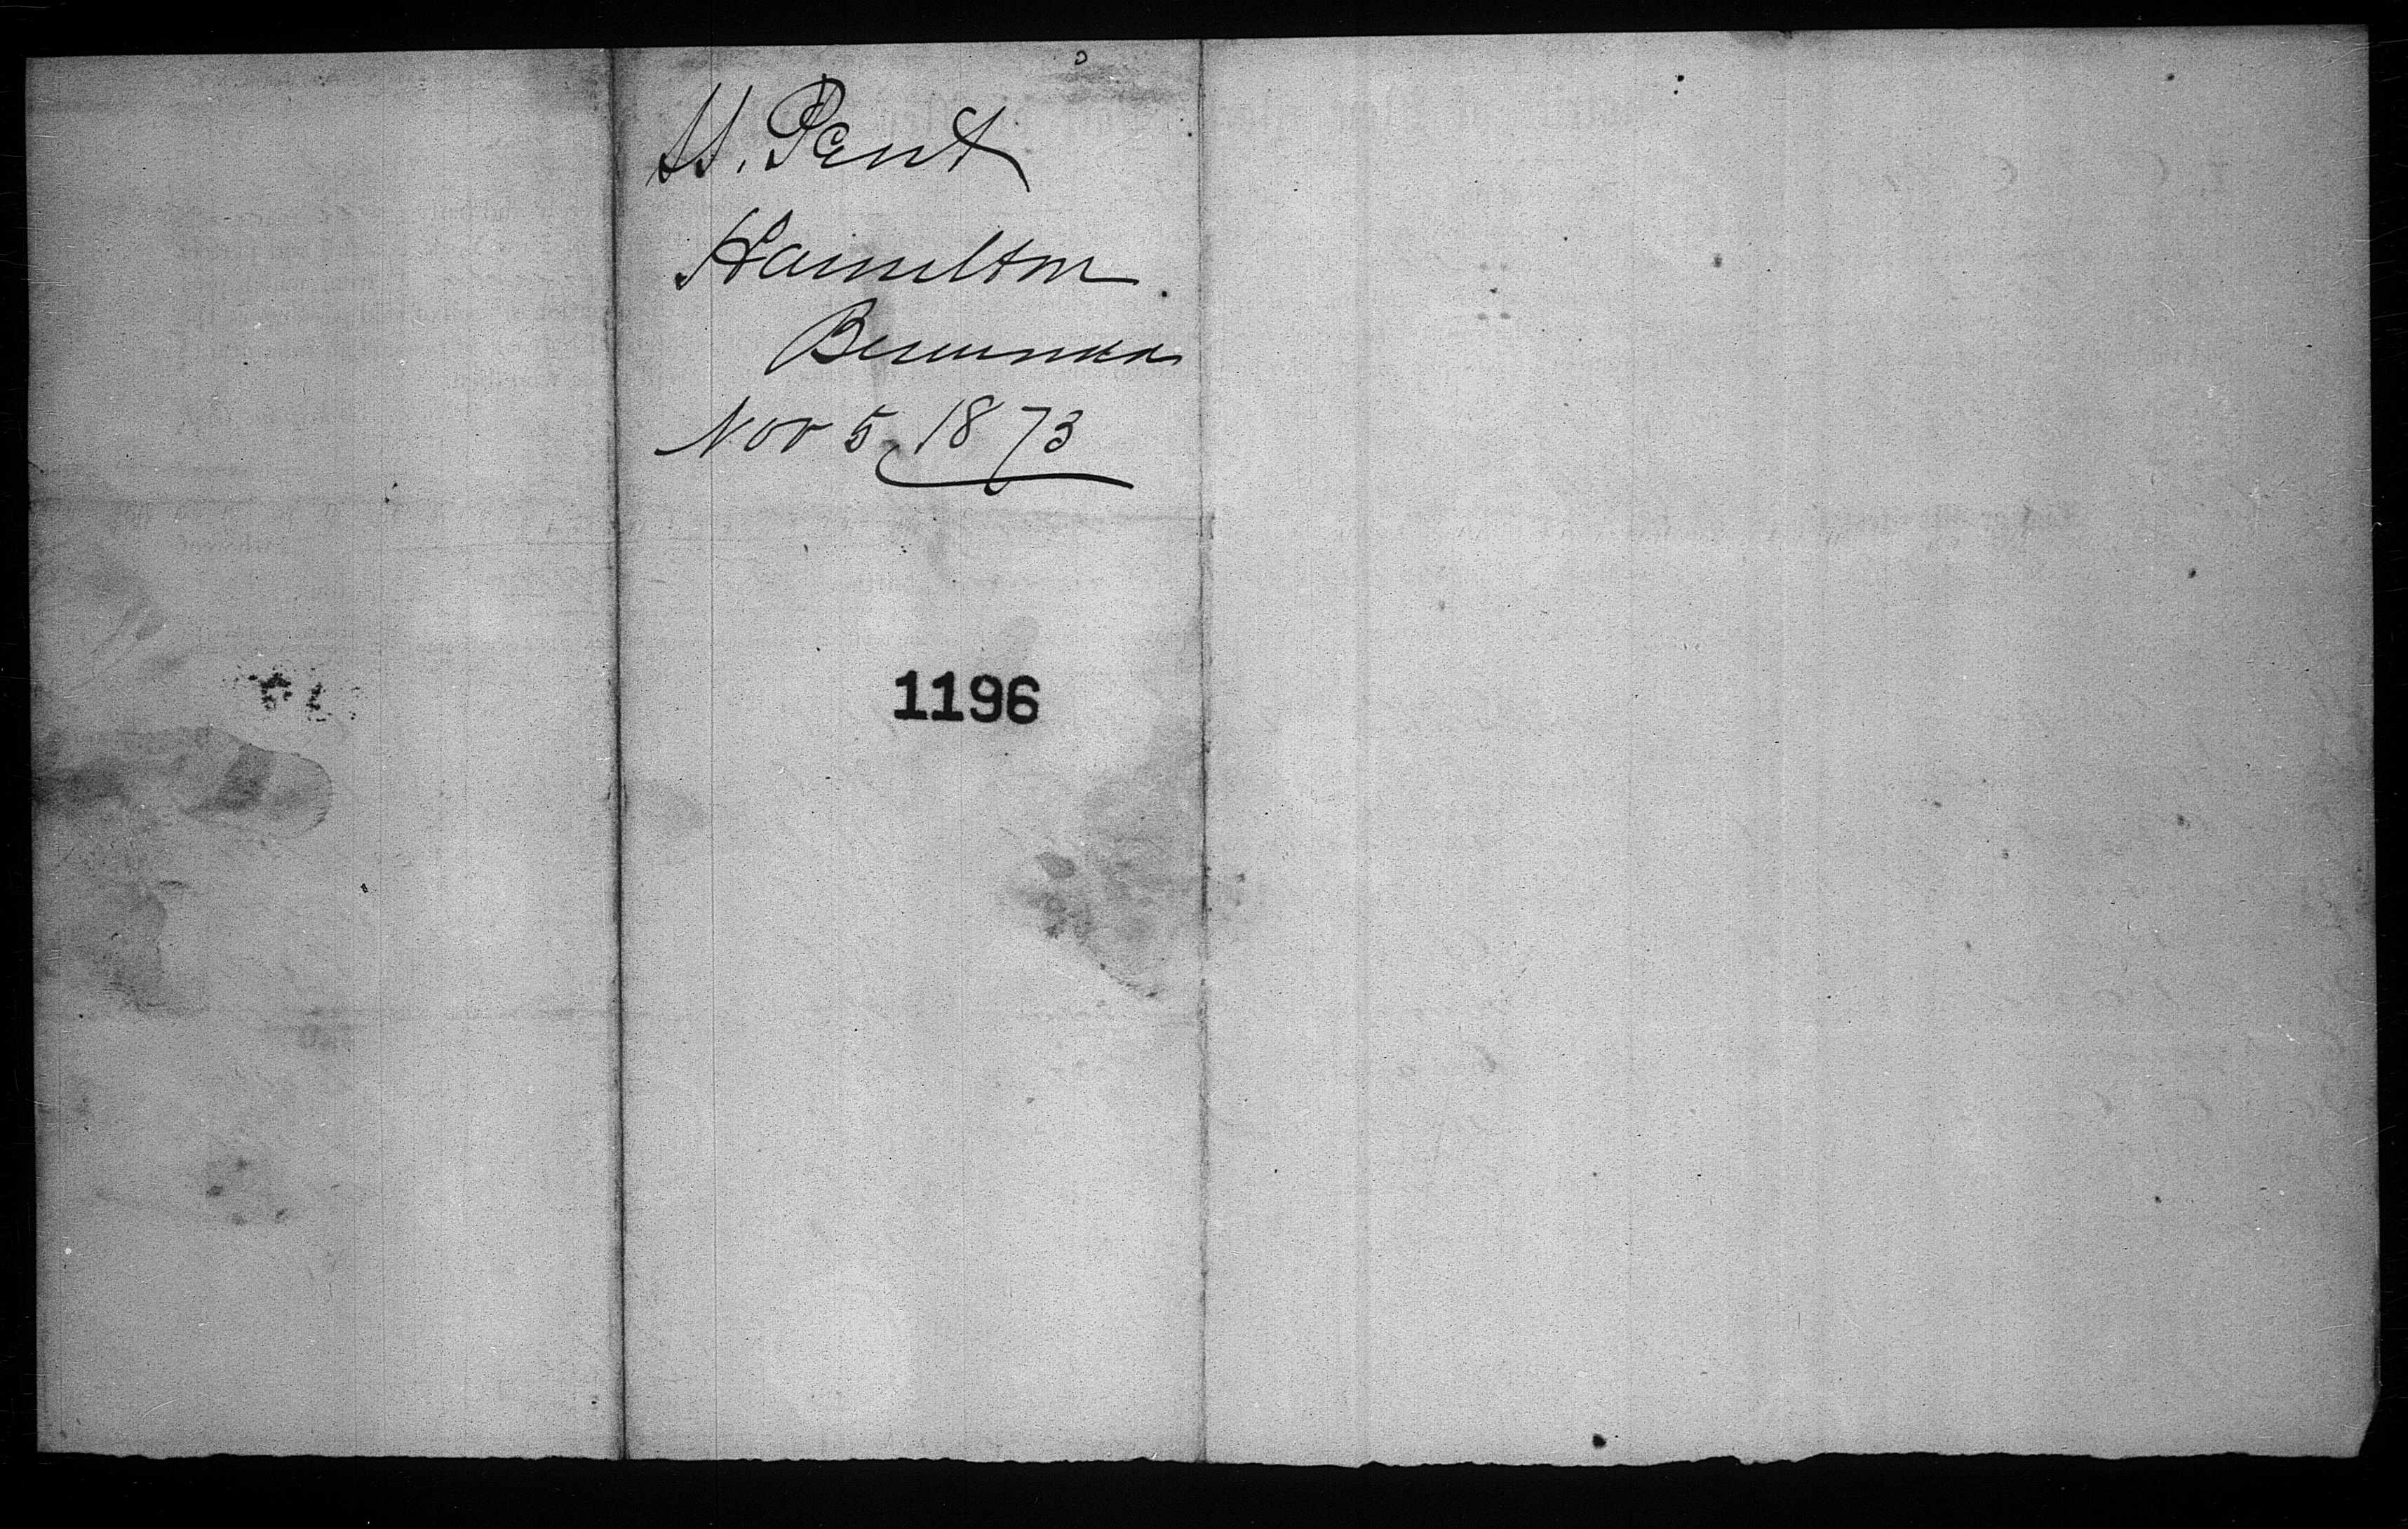 H. Pent
Hamilton
Bermuda
Nov 5, 1873
1196